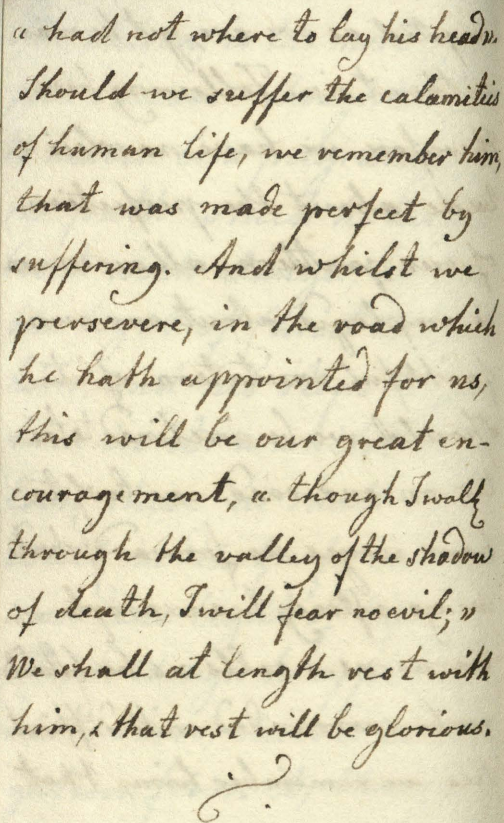 “ had not where to lay his head”.
Should we suffer the calamities
of human life, we remember him,
that was made perfect by
suffering. And whilst we
persevere, in the road which
he hath appointed for us,
this will be our great en-
couragement, “ though I walk
through the valley of the shadow
of death, I will fear no evil; ”
We shall at length rest with
him, & that rest will be glorious.